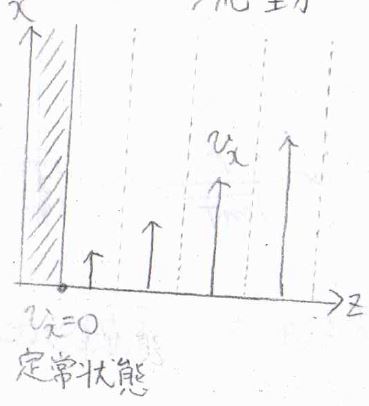 流動
x
v_x
z
v_x=0
定常状態